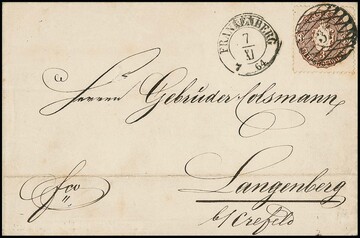 FRANKENBERG
7
XI
7 64
3
Herren Gebrüder Colsmann,
fco
Langenberg
b/Crefeld